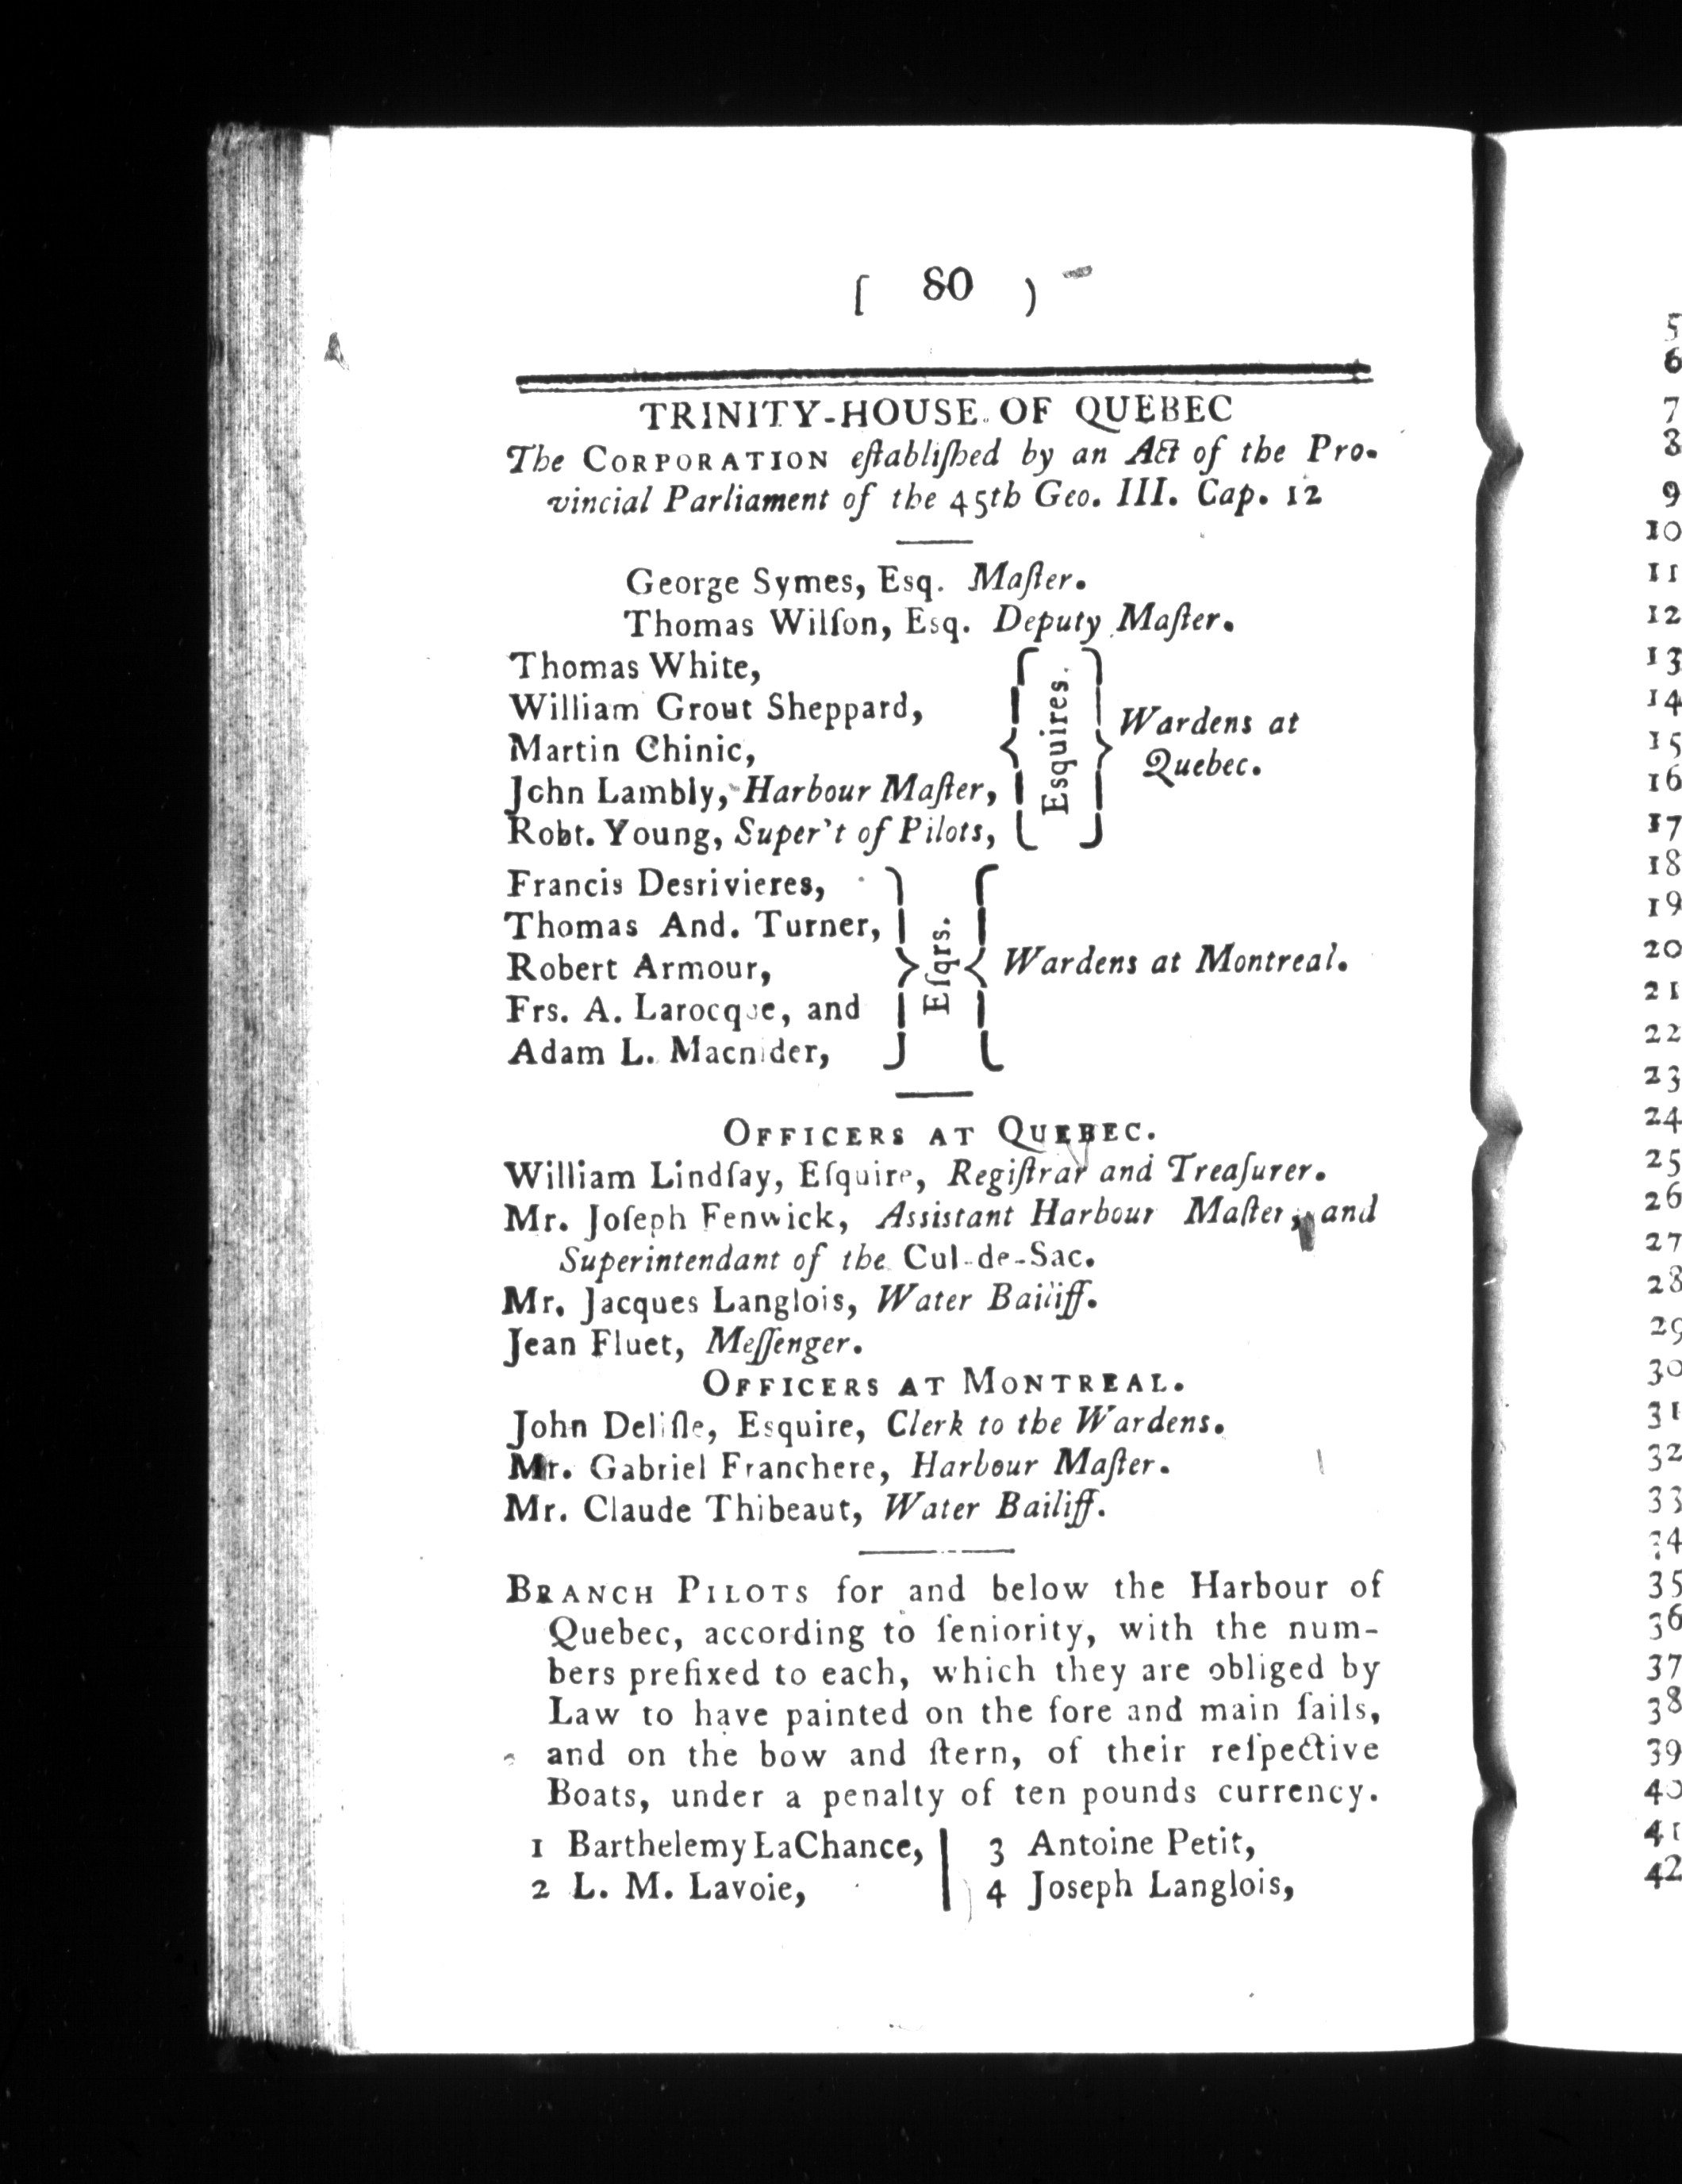 [ 80 )
TRINITY-HOUSE OF QUEBEC
The CORPORATION eſtabliſhed by an Act of the Pro-
vincial Parliament of the 45th Geo. III. Cap. 12
George Symes, Esq. Maſter.
Thomas Wilſon, Esq. Deputy Maſter.
Thomas White,
William Grout Sheppard,
Martin Chinic,
John Lambly, Harbour Maſter,
Robt. Young, Super't of Pilots,
Esquires.
Wardens at
Quebec.
Francis Desrivieres,
Thomas And. Turner,
Robert Armour,
Frs. A. Larocque, and
Adam L. Macnider,
Eſqrs.
Wardens at Montreal.
OFFICERS AT QUEBEC.
William Lindſay, Eſquire, Regiſtrar and Treaſurer.
Mr. Joſeph Fenwick, Assistant Harbour Maſter, and
Superintendant of the Cul-de-Sac.
Mr. Jacques Langlois, Water Bailiff.
Jean Fluet, Meſſenger.
OFFICERS AT MONTREAL.
John Deliſle, Esquire, Clerk to the Wardens.
Mr. Gabriel Franchere, Harbour Maſter.
Mr. Claude Thibeaut, Water Bailiff.
BRANCH PILOTS for and below the Harbour of
Quebec, according to ſeniority, with the num-
bers prefixed to each, which they are obliged by
Law to have painted on the fore and main ſails,
and on the bow and ſtern, of their reſpective
Boats, under a penalty of ten pounds currency.
1 Barthelemy LaChance,
2 L. M. Lavoie,
3 Antoine Petit,
4 Joseph Langlois,
5
6
7
8
9
10
11
12
13
14
15
16
17
18
19
20
21
22
23
24
25
26
27
28
29
30
31
32
33
34
35
36
37
38
39
40
41
42